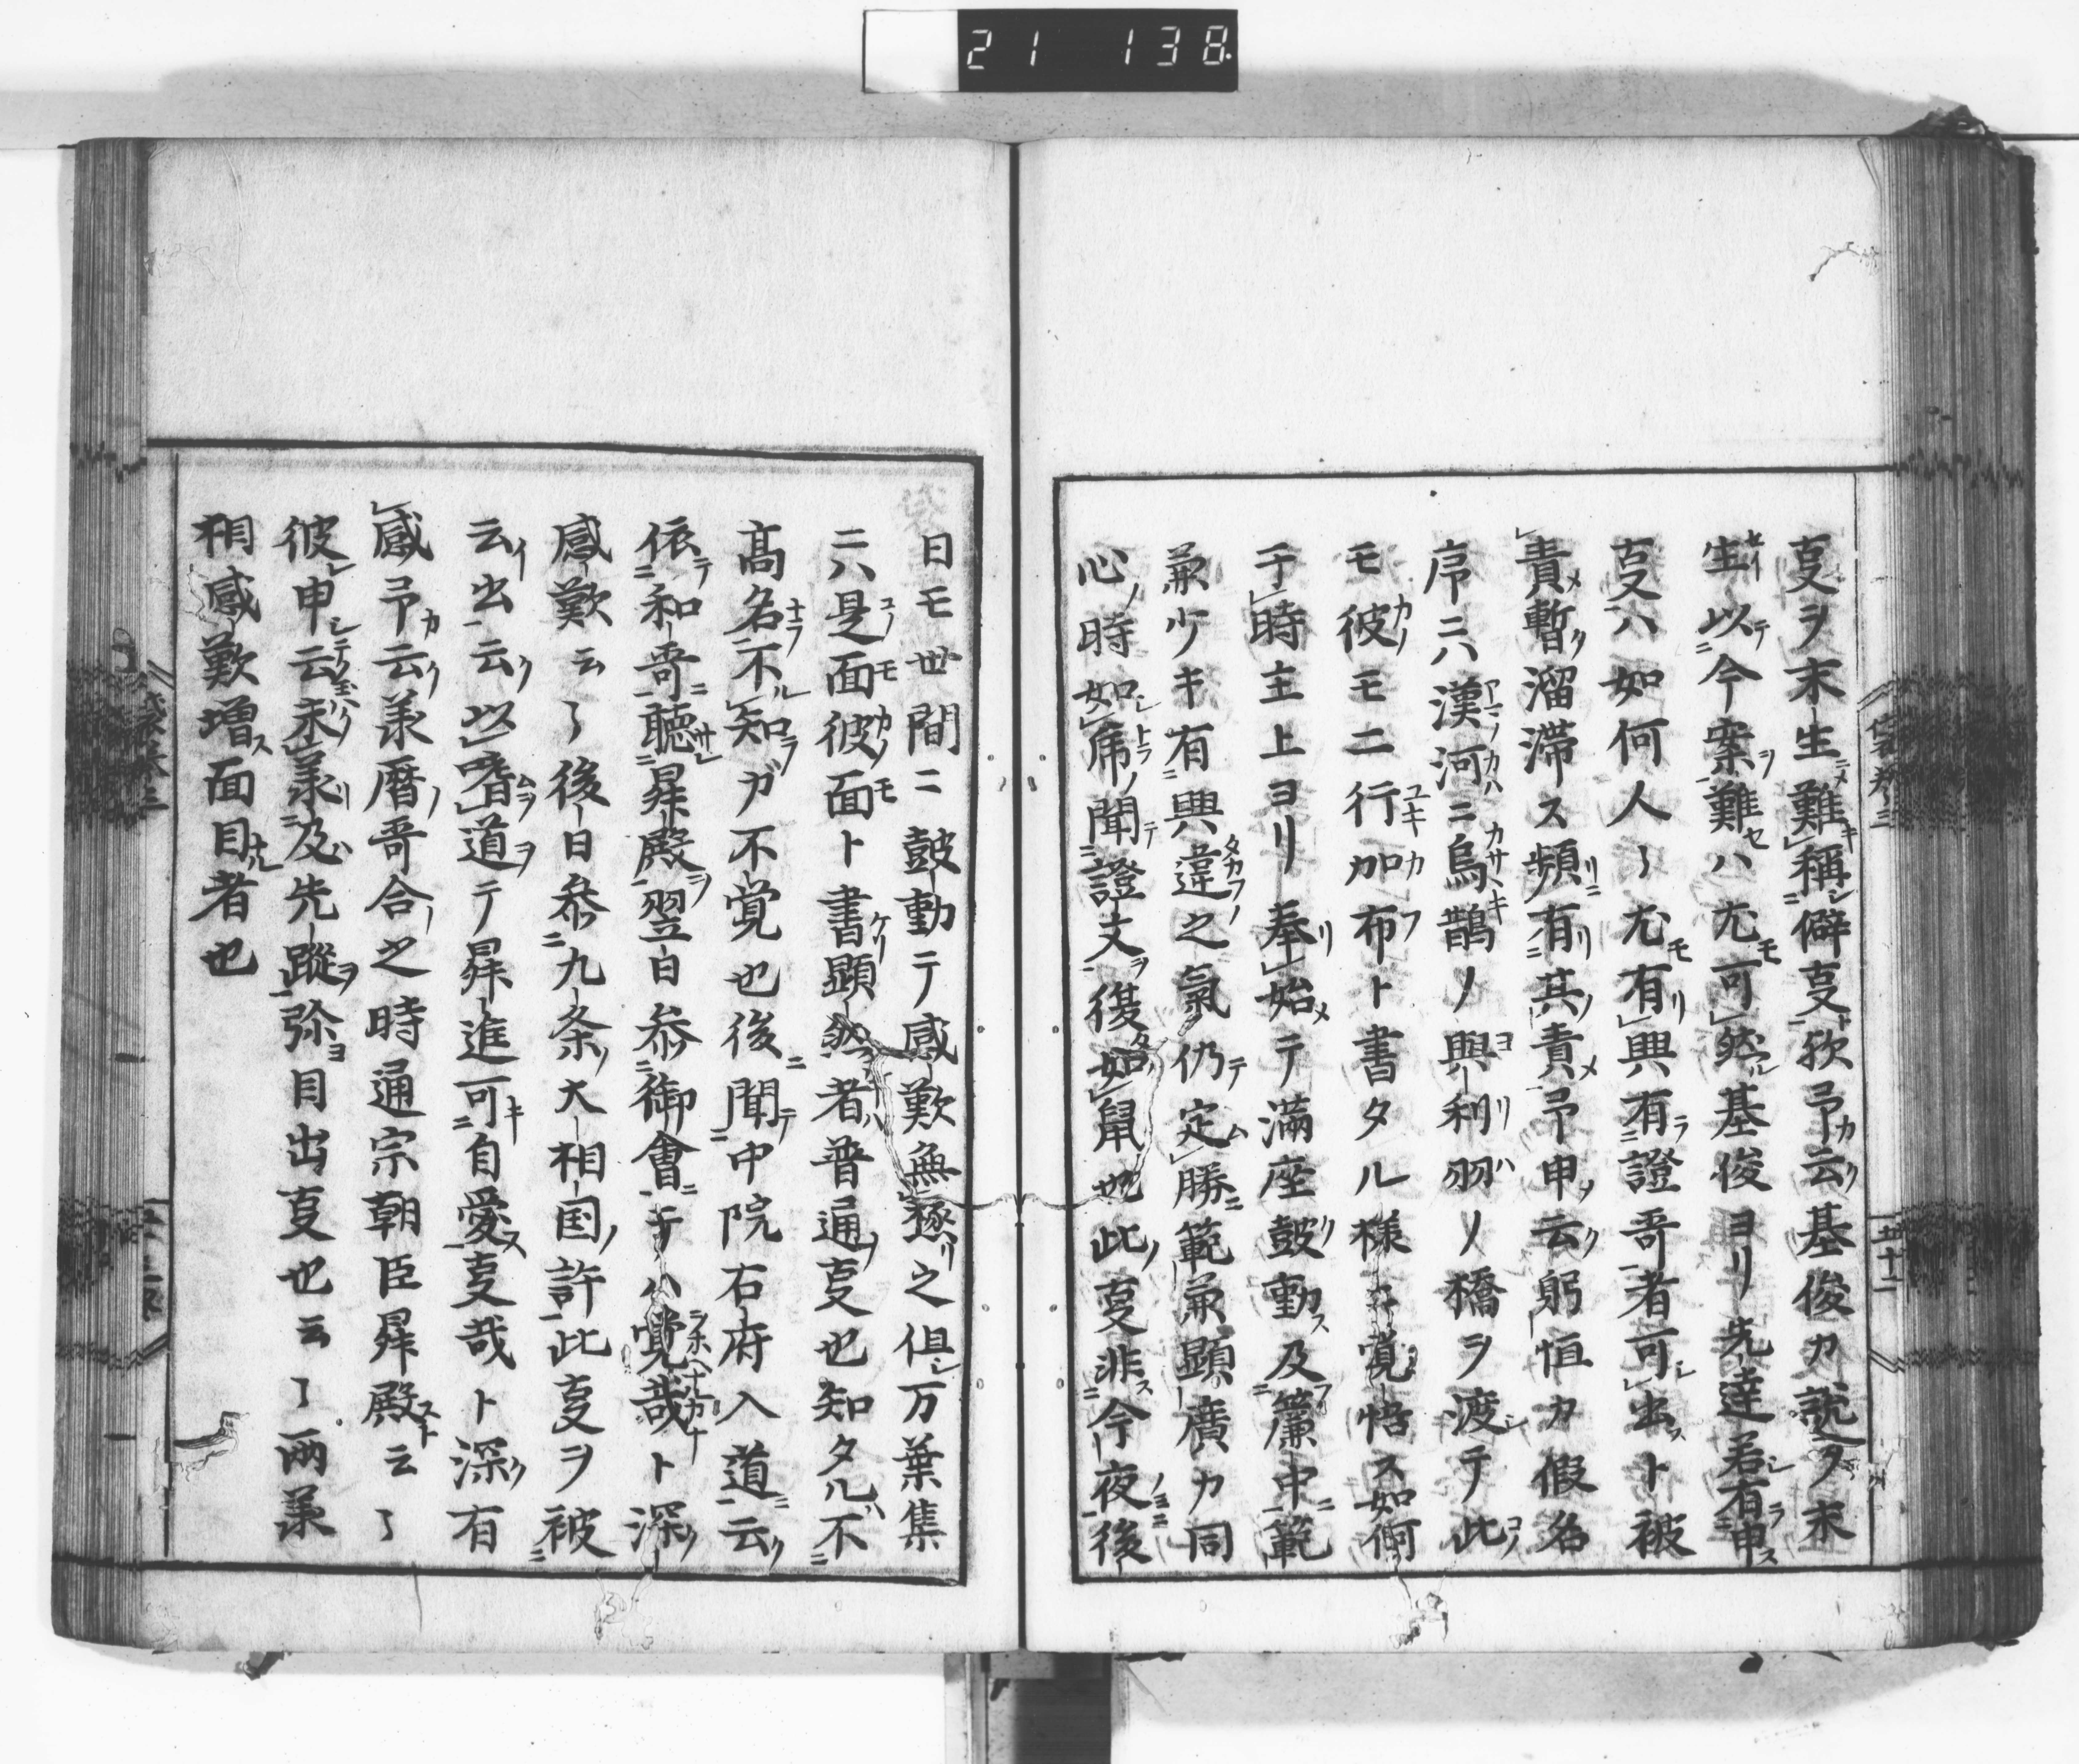 21 138
叓ヲ末生難稱僻叓歟予云基俊カ説ヲ末
生以今案難セハ尤可然基俊ヨリ先達若有申
叓ハ如何人〻尤有興有證哥者可出ト被
責暫溜滞ス頻有其責予申云躬恒カ假名
序ニハ漢河ニ烏鵲ノ與利羽ノ橋ヲ渡テ此
モ彼モニ行加布ト書タル様覚悟ス如何
于時主上ヨリ奉始テ満座鼓動及簾中範
兼少キ有興違之氣仍定勝範兼顕廣カ同
心時如席聞證文復如鼠也此叓非今夜後
日モ世間ニ鼓動テ感歎無極之但万葉集
ニハ是面彼面ト書顕然者普通叓也知タルハ不
高名不知ガ不覚也後聞中院右府入道云
依和哥聽昇殿翌日参御會テハ覚哉ト深
感歎云〻後日参九条大相国許此叓ヲ被
云出云以嗜道テ昇進可自愛叓哉ト深有
感予云兼暦哥合之時通宗朝臣昇殿云〻
彼申云未兼及先蹤弥目出叓也云〻兩兼
相感歎増面目者也
五十二